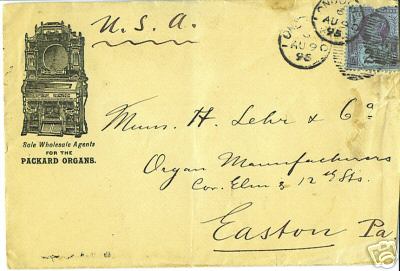 U.S.A.
LONDON
AU 9
95
LONDON
AU 9
95
Sole Wholesale Agents
FOR THE
PACKARD ORGANS.
Messrs. H. Lehr & Co
Organ Manufacturers
Cor. Elm & 12th Sts.
Easton Pa